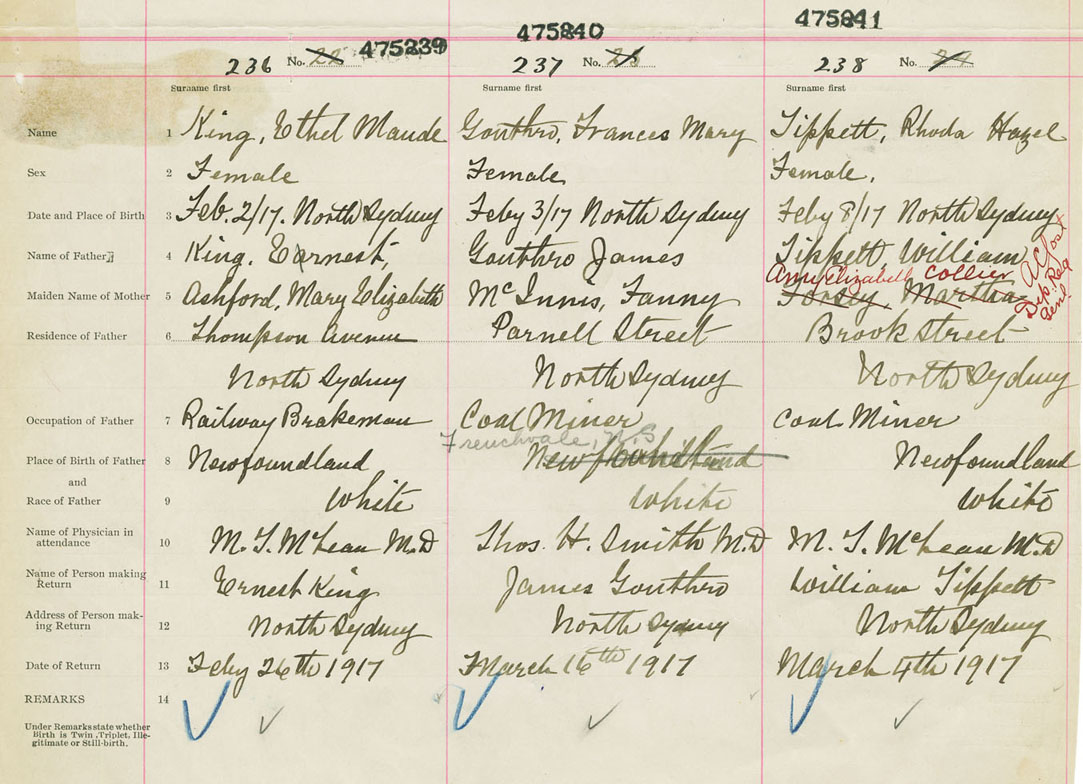 475239 475840 475841
236 No. 22 237 No. 23 238 No.
Surname first Surname first Surname first
Name 1 King, Ethel Maude Gouthro, Frances Mary Tippett, Rhoda Hazel
Sex 2 Female Female Female.
Date and Place of Birth 3 Feb. 2/17. North Sydney Feby 3/17 North Sydney Feby 8/17 North Sydney
Name of Father 4 King, Ernest, Gouthro James Tippett, William
Amy Elizabeth Collier
Maiden Name of Mother 5 Ashford, Mary Elizabeth McInnis, Fanny Forsey Martha
Dep. Reg. Genl
Residence of Father 6 Thompson Avenue Parnell Street Brook Street
North Sydney North Sydney North Sydney
Occupation of Father 7 Railway Brakeman Coal Miner Coal Miner
Frenchvale, N.S
Place of Birth of Father 8 Newfoundland Newfoundland Newfoundland
and
Race of Father 9 White White White
Name of Physician in
attendance 10 M. T. McLean M.D Thos. H. Smith M.D M. T. McLean M.D
Name of Person making
Return 11 Ernest King James Gouthro William Tippett
Address of Person mak-
ing Return 12 North Sydney North Sydney North Sydney
Date of Return 13 Feby 26th 1917 March 16th 1917 March 4th 1917
REMARKS 14
Under Remarks state whether
Birth is Twin, Triplet, Ille-
gitimate or Still-birth.